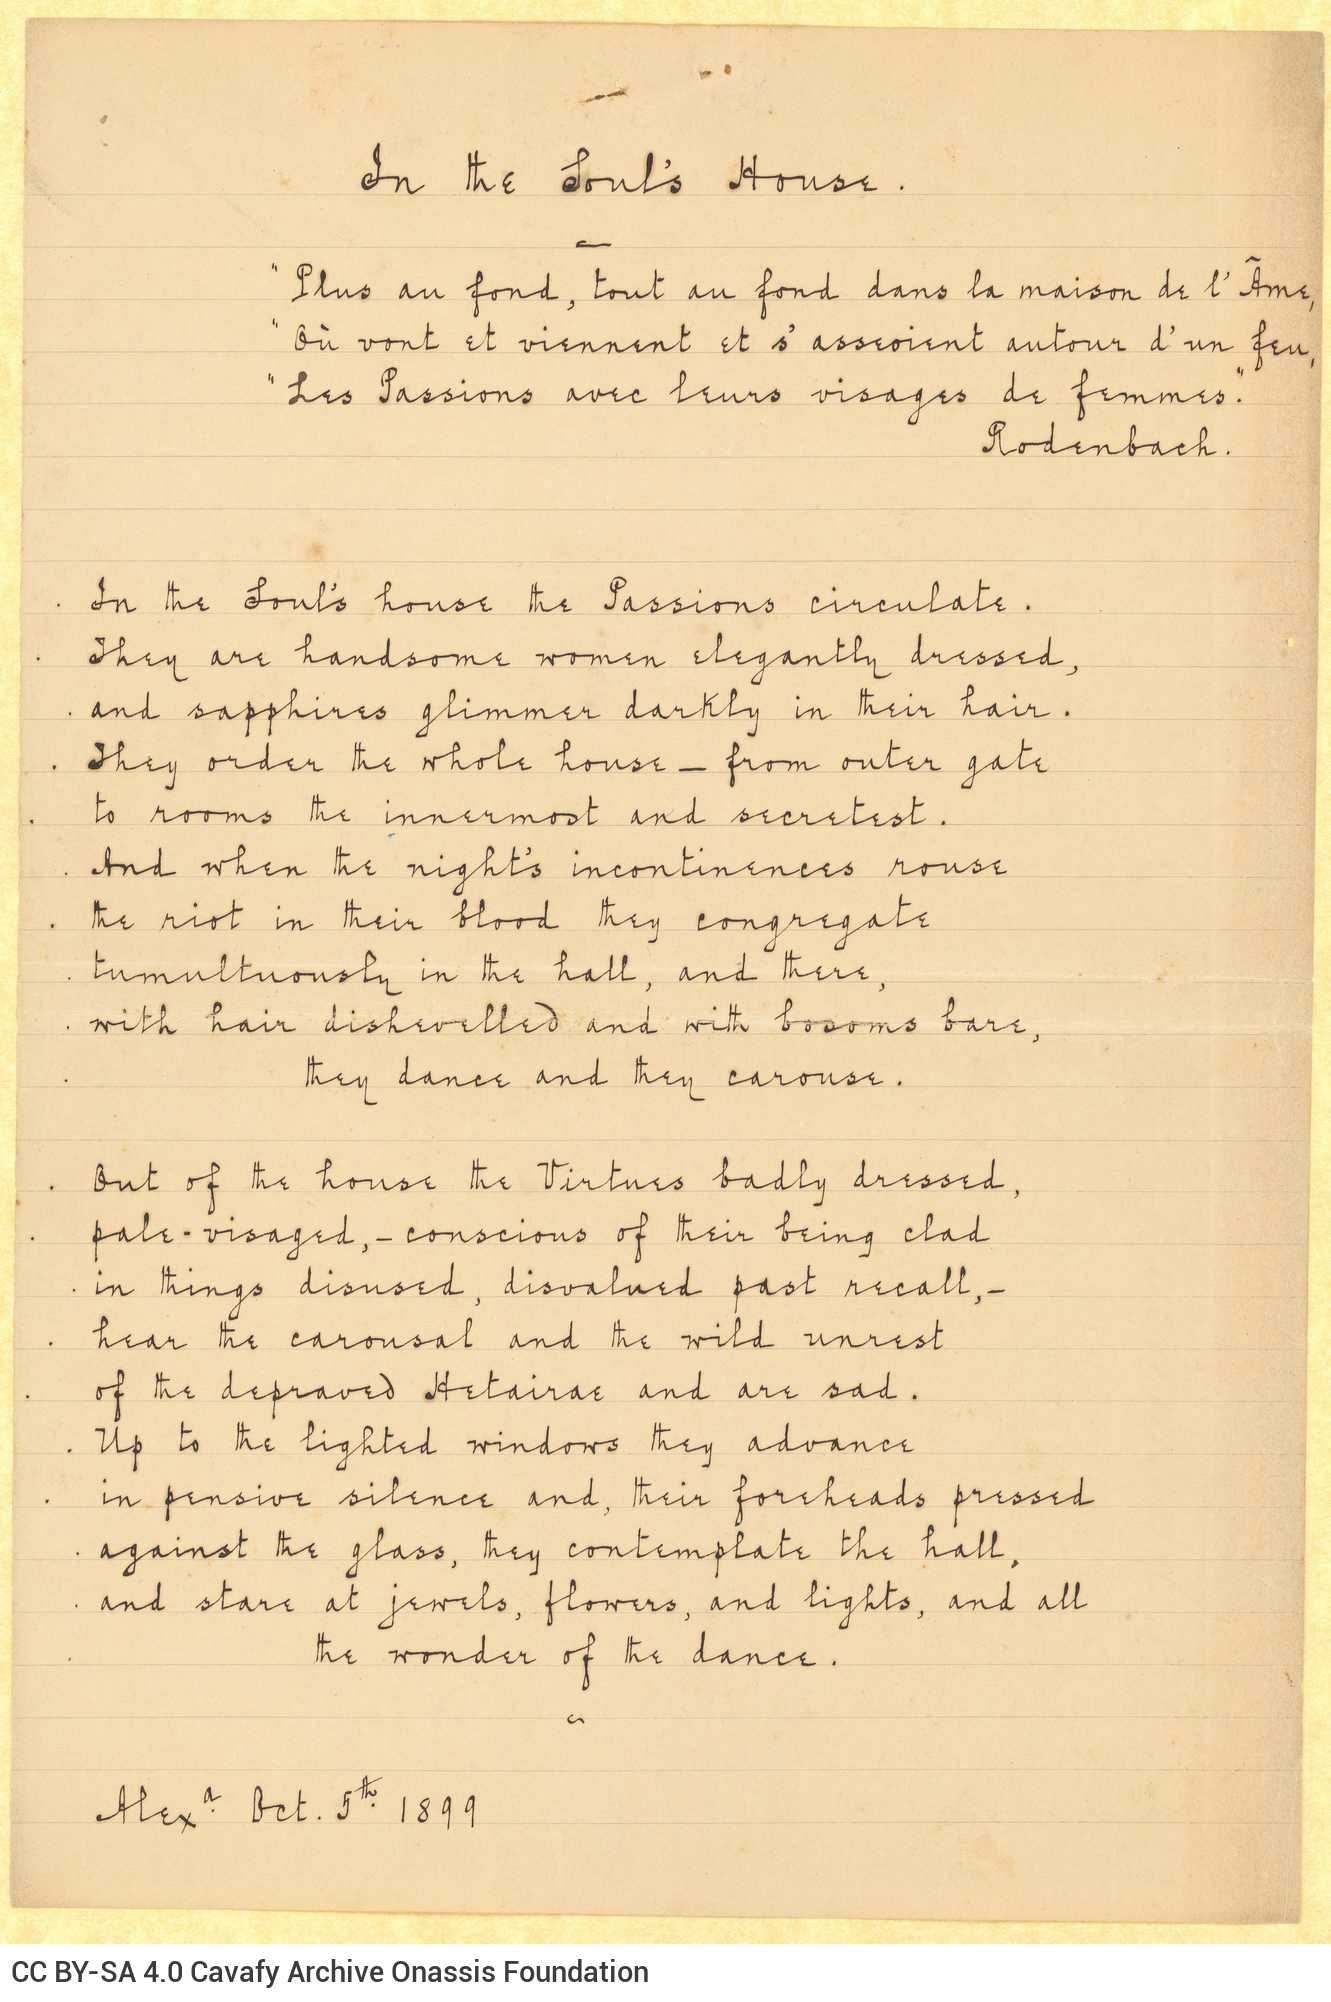 In the Soul's House.
"Plus au fond, tout au fond dans la maison de l'Âme,
"Où vont et viennent et s'asseoient autour d'un feu,
"Les Passions avec leurs visages de femmes."
Rodenbach.
In the Soul's house the Passions circulate.
They are handsome women elegantly dressed,
and sapphires glimmer darkly in their hair.
They order the whole house — from outer gate
to rooms the innermost and secretest.
And when the night's incontinences rouse
the riot in their blood they congregate
tumultuously in the hall, and there,
with hair dishevelled and with bosoms bare,
they dance and they carouse.
Out of the house the Virtues badly dressed,
pale-visaged, — conscious of their being clad
in things disused, disvalued past recall, —
hear the carousal and the wild unrest
of the depraved Hetairae and are sad.
Up to the lighted windows they advance
in pensive silence and, their foreheads pressed
against the glass, they contemplate the hall,
and stare at jewels, flowers, and lights, and all
the wonder of the dance.
Alexa. Oct. 5th. 1899
CC BY-SA 4.0 Cavafy Archive Onassis Foundation